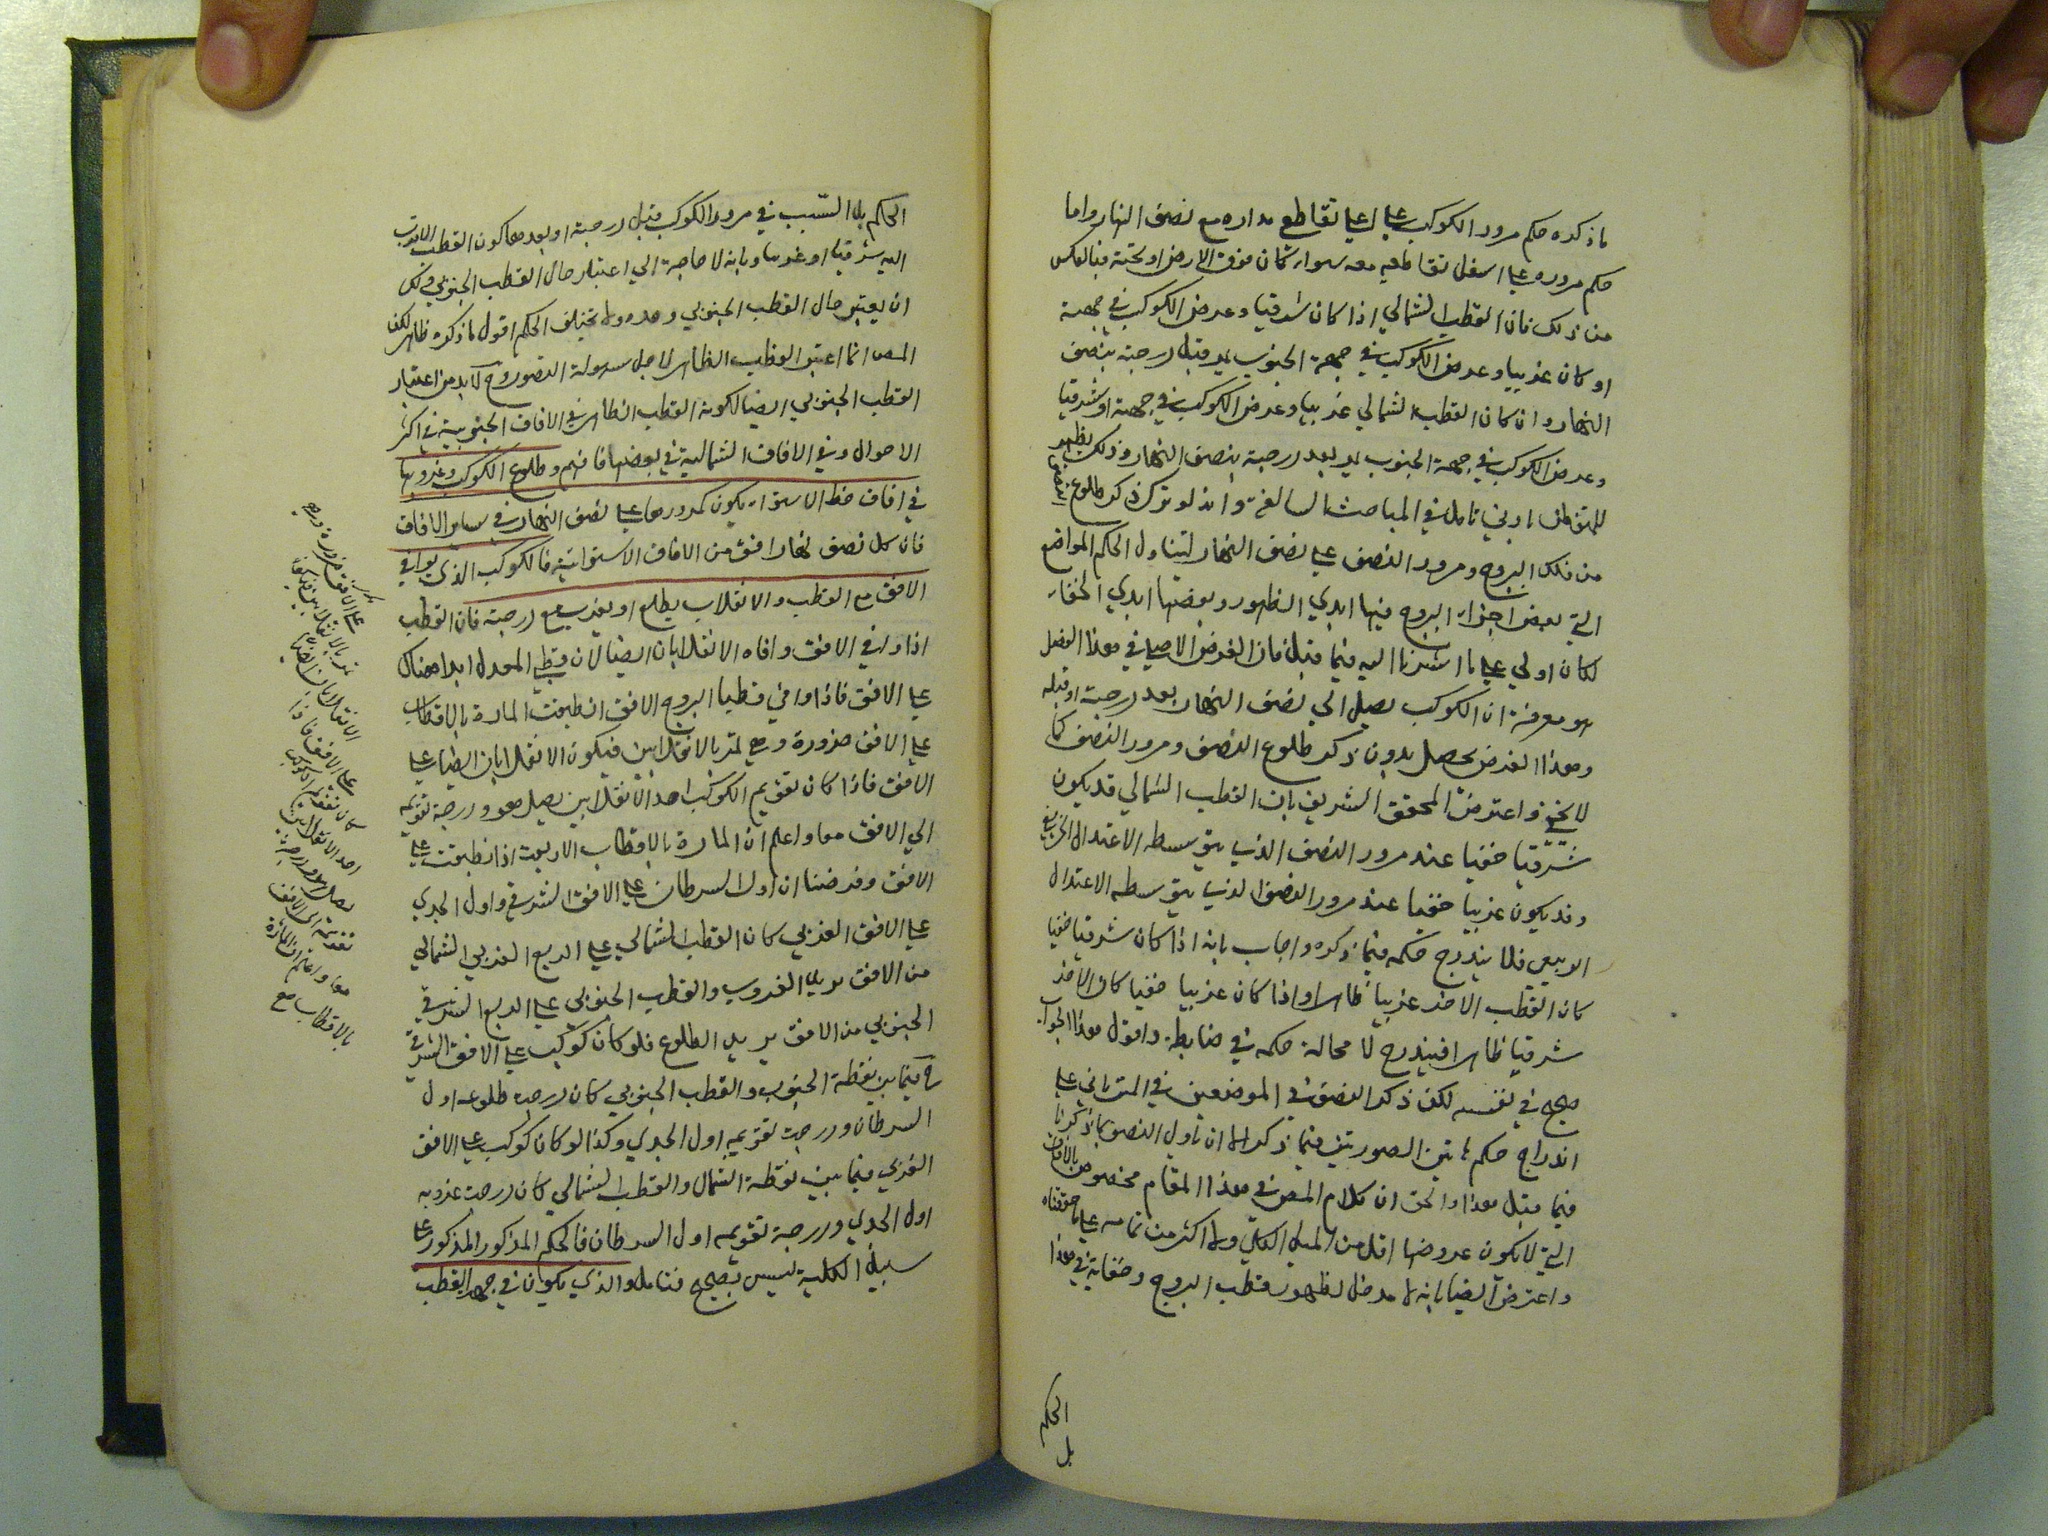 ما ذكره حكم مرور الكوكب على اعلى تقاطع مداره مع نصف النهار واما
حكم مروره على اسفل تقاطعيه معه سواء كان فوق الارض او تحته فبالعكس
من ذلك فان القطب الشمالي اذا كان شرقيا وعرض الكوكب في جهته
او كان غربيا وعرض الكوكب في جهة الجنوب يمر قبل درجته بنصف
النهار وان كان القطب الشمالي غربيا وعرض الكوكب في جهته او شرقيا
وعرض الكوكب في جهة الجنوب يمر بعد درجته بنصف النهار وذلك يظهر
للمتفطن بادنى تامل في المباحث السالفة وانه لو ترك ذكر طلوع النصف
من فلك البروج ومرور النصف على نصف النهار ليتناول الحكم المواضع
التي بعض اجزاء البروج فيها ابدي الظهور وبعضها ابدي الخفاء
لكان اولى على ما اشرنا اليه فيما قبل فان الغرض الاصلي في هذا الفصل
هو معرفة ان الكوكب يصل الى نصف النهار بعد درجته او قبله
وهذا الغرض يحصل بدون ذكر طلوع النصف ومرور النصف كما
لا يخفى واعترض المحقق الشريف بان القطب الشمالي قد يكون
شرقيا خفيا عند مرور النصف الذي يتوسطه الاعتدال الخريفي
وقد يكون غربيا خفيا عند مرور النصف الذي يتوسطه الاعتدال
الربيعي فلا يندرج حكمه فيما ذكره واجاب بانه اذا كان شرقيا خفيا
كان القطب الاخر غربيا ظاهرا واذا كان غربيا خفيا كان الاخر
شرقيا ظاهرا فيندرج لا محالة حكمه في ضابطه واقول هذا الجواب
صحيح في نفسه لكن ذكر النصف في الموضعين في المتن ياني على
اندراج حكم هاتين الصورتين فيما ذكر الا ان ناول النصف بما ذكرنا
فيما قبل هذا والحق ان كلام المص في هذا المقام مخصوص بالافاق
التي لا يكون عروضها اقل من الميل الكلي ولا اكثر من تمامه على ما حققناه
واعترض ايضا بانه لا مدخل لظهور قطب البروج وخفائه في هذا
الحكم
بل
الحكم بل السبب في مرور الكوكب قبل درجته او بعدها كون القطب الاقرب
اليه شرقيا او غربيا وبانه لا حاجة الى اعتبار حال القطب الجنوبي
ان يعتبر حال القطب الجنوبي وحده ولا يختلف الحكم اقول ما ذكره ظاهر لكن
المص انما اعتبر القطب الظاهر لاجل سهولة التصور وح لا بد من اعتبار
القطب الجنوبي ايضا لكونه القطب الظاهر في الافاق الجنوبية في اكثر
الاحوال وفي الافاق الشمالية في بعضها فافهم وطلوع الكوكب وغروبها
في افاق خط الاستواء يكون كمرورها على نصف النهار في سائر الافاق
فان كل نصف نهار افق من الافاق الاستوائية فالكوكب الذي يوافي
الافق مع القطب والانقلاب يطلع او يغرب مع درجته فان القطب
اذا وافى الافق وافاه الانقلابان ايضا لان قطبي المعدل ابدا هناك
على الافق فاذا وافى قطبا البروج الافق انطبقت المارة بالاقطاب
على الافق ضرورة وهي تمر بالانقلابين فيكون الانقلابان ايضا على
الافق فاذا كان تقويم الكوكب احد الانقلابين يصل هو ودرجة تقويمه
الى الافق معا واعلم ان المارة بالاقطاب الاربعة اذا انطبقت على
الافق وفرضنا ان اول السرطان على الافق الشرقي واول الجدي
على الافق الغربي كان القطب الشمالي على الربع الغربي الشمالي
من الافق يريد الغروب والقطب الجنوبي على الربع الشرقي
الجنوبي من الافق يريد الطلوع فلو كان كوكب على الافق الشرقي
ح فيما بين نقطة الجنوب والقطب الجنوبي كان درجة طلوعه اول
السرطان ودرجة تقويمه اول الجدي وكذا لو كان كوكب على الافق
الغربي فيما بين نقطة الشمال والقطب الشمالي كان درجة غروبه
اول الجدي ودرجة تقويمه اول السرطان فالحكم المذكور المذكور على
سبيل الكلية ليس بصحيح فتامل والذي يكون في جهة القطب
على الافق ضرورة وهي
تمر بالانقلابين فيكون
الانقلابان ايضا
على الافق فاذا
كان تقويم الكوكب
احد الانقلابين
يصل هو ودرجة
تقويمه الى الافق
معا واعلم ان المارة
بالاقطاب مع